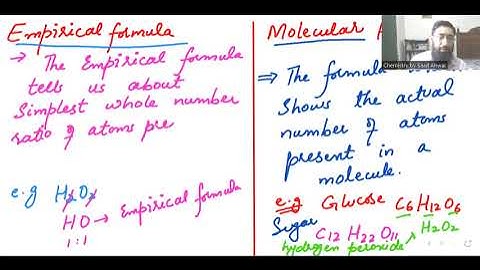 Empirical formula
→ The Empirical formula
tells us about
Simplest whole number
ratio of atoms pre
e.g H2O2
HO → Empirical formula
1:1
Molecular
Chemistry by Saad Anwar
⇒ The formula
Shows the actual
number of atoms
present in a
molecule.
e.g Glucose C6H12O6
Sugar
C12 H22 O11
hydrogen peroxide → H2O2